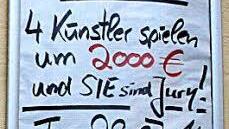 4 Künstler spielen
um 2000 €
und SIE sind Jury!